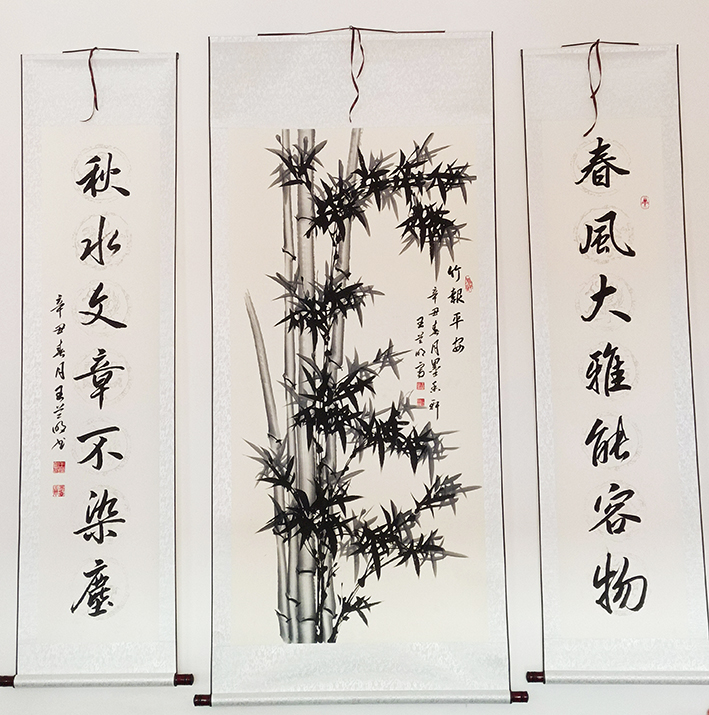 春風大雅能容物
竹報平安
辛丑春月墨香軒
王兰明寫
秋水文章不染塵
辛丑春月王兰明书